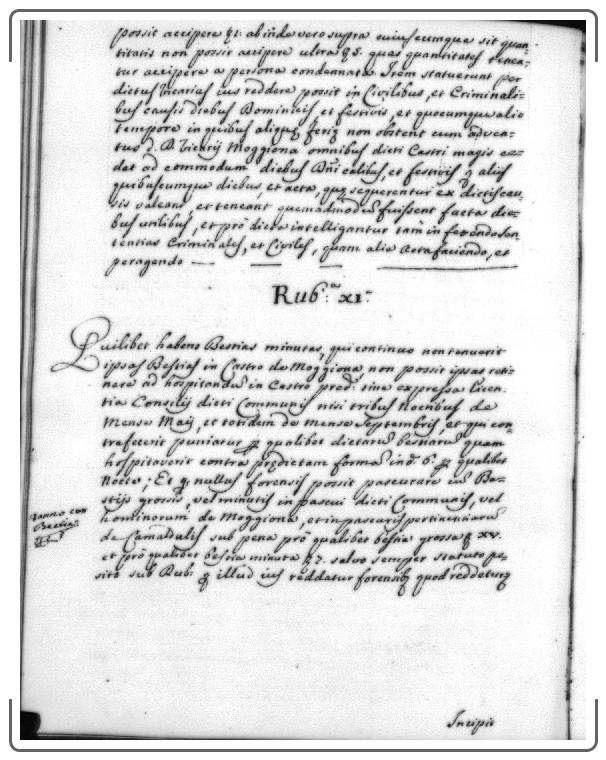 possit accipere §1: ab inde vero supra cuiuscumque sit quan-
titatis non possit accipere ultra § 5. quas quantitates tenea-
tur accipere a persona condennata. Item statuerunt per
dictus Vicarius ius reddere possit in Civilibus, et Criminali-
bus causis diebus Dominicis et festivis, et quocumque alio
tempore in quibus aliquę ferię non obstent cum adven-
tus d. D. Vicarij Moggiona omnibus dicti Castri magis ce-
dat ad commodum diebus Dñicalibus, et festivis q̃ alijs
quibuscumque diebus, et acta, quę sequerentur ex dictis cau-
sis valeant, et teneant quemadmodũ fuissent facta die-
bus utilibus, et prõ dicta intelligantur tam in ferendo Sen
tentias Criminales, et Civiles, quam alia Acta faciendo, et
peragendo
Rub.ca XI.
Quilibet habens Bestias minutas, qui continuo non tenuerit
ipsas Bestias in Castro de Moggiona non possit ipsas reti-
nere ad hospitandũ in Castro pred: sine expressa licen-
tia Consilij dicti Communis nisi tribus Noctibus de
Mense Maij, et totidem de mense Septembris, et qui con-
trafecerit puniatur p qualibet dictarũ bestiarũ quam
hospitaverit contra prędictam formã in d. 6: p qualibet
Nocte; Et q. nullus forensis possit pascurare cũ Be-
stijs grossis, vel minutis in pascui dicti Communis, vel
hominorum de Moggiona, et in pascuis pertinentiarũ
de Camaldulis sub pena prõ qualibet bestia grossa § XV.
et prõ qualibet bestia minuta § 7. salvo semper statuto po-
sito sub Rub: q̃ illud ius reddatur forensibꝫ quod redditurꝫ
Danno con
Bestie
Incipit